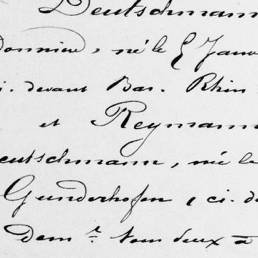 Deutschmann
donnier, né le 8 Janv
i. devant Bas. Rhin
et Reymann
eutschmann, née le
Gunderhofen, ci. d
dem.t tous deux à